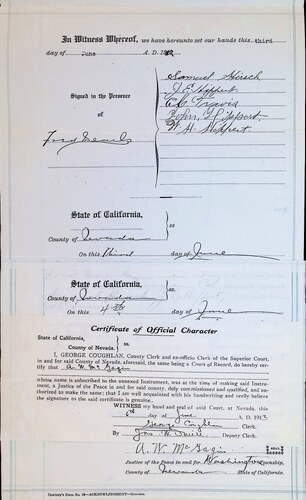 In Witness Whereof, we have hereunto set our hands this third
day of June A. D. 19
Samuel Hirsch
J. E. Hippert
Signed in the Presence
of
E. C. Travis
John J. Hippert
W. H. Hippert
State of California,
ss
County of Nevada
On this third day of June
State of California,
ss
County of Nevada
On this 4th day of June
Certificate of Official Character
State of California,
County of Nevada. ss
I, GEORGE COUGHLAN, County Clerk and ex-officio Clerk of the Superior Court,
in and for said County of Nevada, aforesaid, the same being a Court of Record, do hereby
certify that A. W. McGagin
whose name is subscribed to the annexed Instrument, was at the time of making said Instru-
ment, a Justice of the Peace in and for said county, duly commissioned and qualified, and au-
thorized to make the same; that I am well acquainted with his handwriting and verily believe
the signature to the said certificate is genuine.
WITNESS my hand and seal of said Court, at Nevada, this
6th day of June A. D. 1913
George Coughlan Clerk.
By Jno. W. Deputy Clerk.
A. W. McGagin
Justice of the Peace in and for Washington Township
County of Nevada State of California.
No. 18—ACKNOWLEDGMENT—General.